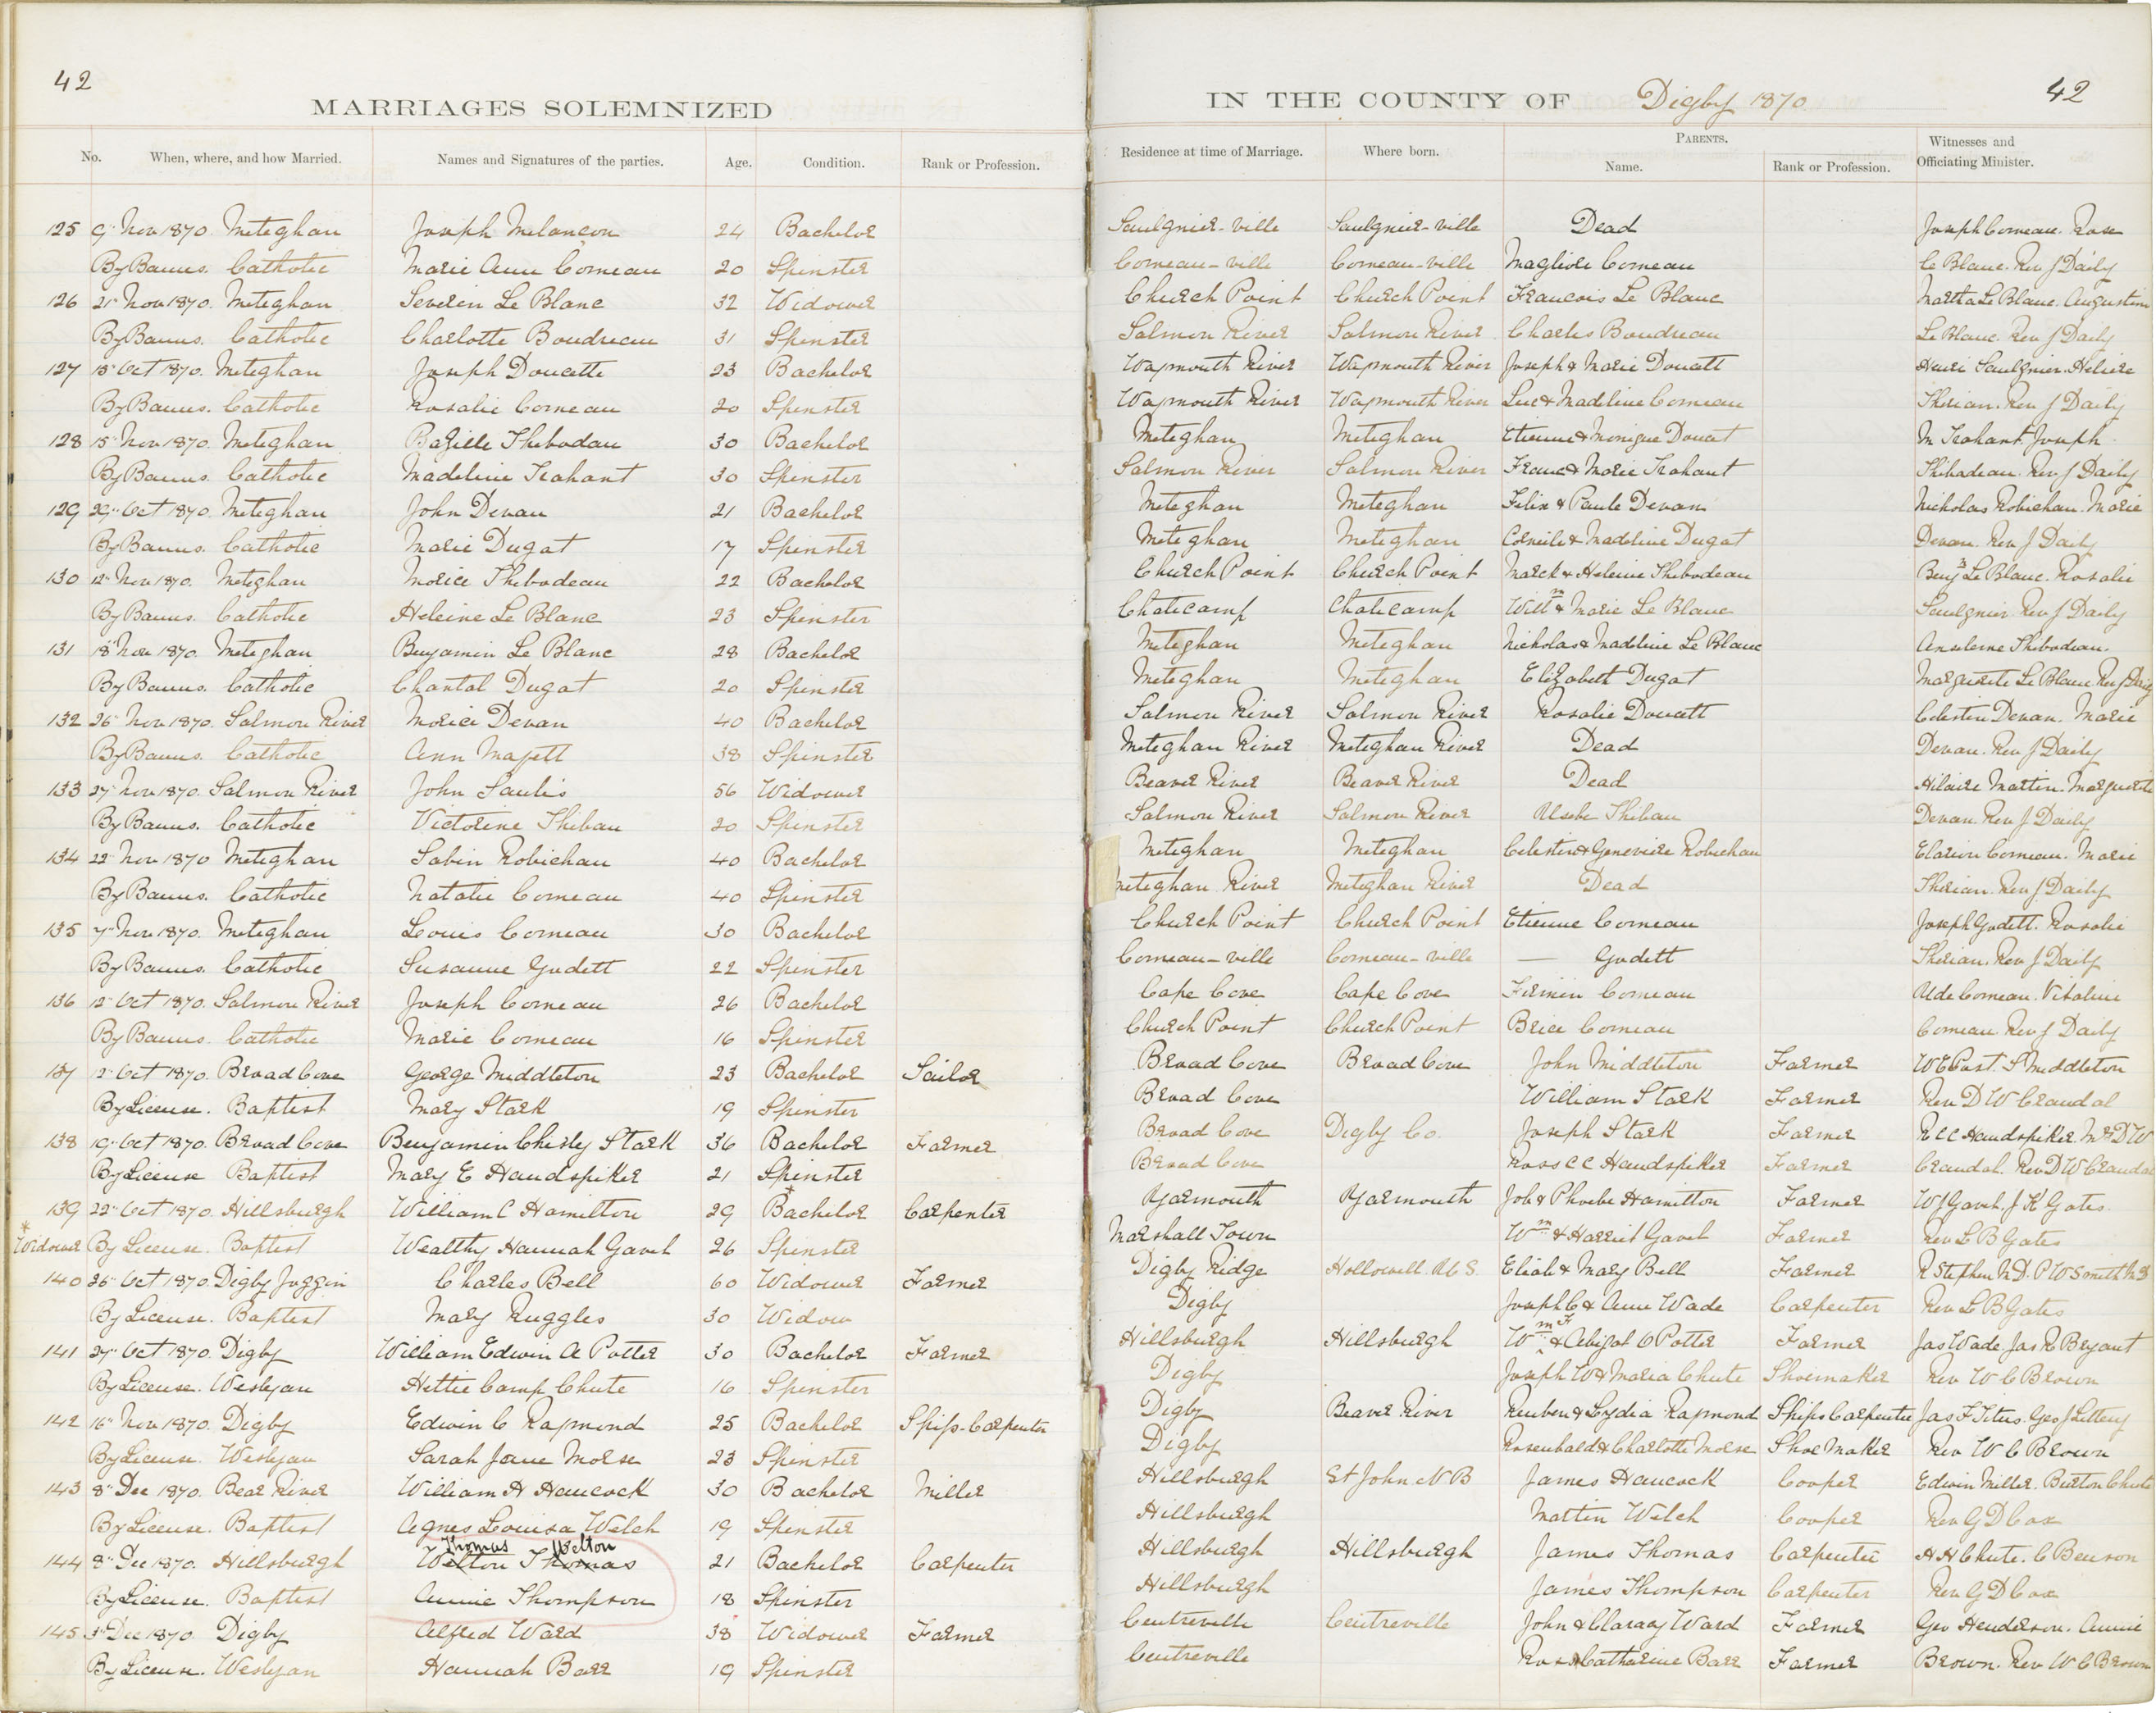 42
MARRIAGES SOLEMNIZED
IN THE COUNTY OF Digby 1870
42
No. When, where, and how Married. Names and Signatures of the parties. Age. Condition. Rank or Profession. Residence at time of Marriage. Where born. PARENTS. Name. Rank or Profession. Witnesses and Officiating Minister.
125 9" Nov 1870. Meteghan Joseph Melancon 24 Bachelor Saulgnier-ville Saulgnier-ville Dead Joseph Comeau. Rose
By Banns. Catholic Marie Ann Comeau 20 Spinster Comeau-ville Comeau-ville Magliore Comeau Le Blanc. Rev J Daily
126 21" Nov 1870. Meteghan Severin Le Blanc 32 Widower Church Point Church Point Francois Le Blanc Martha Le Blanc. Augustin
By Banns. Catholic Charlotte Boudreau 31 Spinster Salmon River Salmon River Charles Boudreau Le Blanc. Rev J Daily
127 15" Oct 1870. Meteghan Joseph Doucette 23 Bachelor Waymouth River Waymouth River Joseph & Marie Doucett Henri Saulgnier. Heliere
By Banns. Catholic Rosalie Comeau 20 Spinster Waymouth River Waymouth River Luc & Madeline Comeau Therian. Rev J Daily
128 15" Nov 1870. Meteghan Bazille Thebodau 30 Bachelor Meteghan Meteghan Etienne & Monique Doucet M Trahant. Joseph
By Banns. Catholic Madeline Trahant 30 Spinster Salmon River Salmon River Franc & Marie Trahant Thibadeau. Rev J Daily
129 29" Oct 1870. Meteghan John Devau 21 Bachelor Meteghan Meteghan Felix & Paule Devau Nicholas Robichau. Marie
By Banns. Catholic Marie Dugat 17 Spinster Meteghan Meteghan Corneile & Madeline Dugat Devau. Rev J Daily
130 12" Nov 1870. Meteghan Morice Thebodeau 22 Bachelor Church Point Church Point Marck & Heleine Thebodeau Benj Le Blanc. Rosalie
By Banns. Catholic Heleine Le Blanc 23 Spinster Chaticamp Chaticamp Willm & Marie Le Blanc Saulgnier. Rev J Daily
131 18" Nov 1870. Meteghan Benjamin Le Blanc 28 Bachelor Meteghan Meteghan Nicholas & Madeline Le Blanc Anseleme Thebodeau.
By Banns. Catholic Chantal Dugat 20 Spinster Meteghan Meteghan Elizabeth Dugat Marguerite Le Blanc Rev J Daily
132 26" Nov 1870. Salmon River Morice Devau 40 Bachelor Salmon River Salmon River Rosalie Doucett Celestin Devau. Marie
By Banns. Catholic Ann Mafett 38 Spinster Meteghan River Meteghan River Dead Devau. Rev J Daily
133 27" Nov 1870. Salmon River John Saulis 56 Widower Beaver River Beaver River Dead Hilaire Martin. Marguerite
By Banns. Catholic Victorine Thibau 20 Spinster Salmon River Salmon River Usebe Thibau Devau. Rev J. Daily
134 22" Nov 1870 Meteghan Sabin Robichau 40 Bachelor Meteghan Meteghan Celestin & Genevieve Robichau Elarion Comeau. Marie
By Banns. Catholic Natalie Comeau 40 Spinster Meteghan River Meteghan River Dead Therian. Rev J. Daily
135 7" Nov 1870. Meteghan Louis Comeau 30 Bachelor Church Point Church Point Etienne Comeau Joseph Gudett. Rosalie
By Banns. Catholic Susanne Gudett 22 Spinster Comeau-ville Comeau-ville — Gudett Therian. Rev J. Daily
136 12" Oct 1870. Salmon River Joseph Comeau 26 Bachelor Cape Cove Cape Cove Firmin Comeau Ude Comeau. Vitaline
By Banns. Catholic Marie Comeau 16 Spinster Church Point Church Point Brice Comeau Comeau. Rev J Daily
137 12" Oct 1870. Broad Cove George Middleton 23 Bachelor Sailor Broad Cove Broad Cove John Middleton Farmer W E Post. S Middleton
By License. Baptist Mary Stark 19 Spinster Broad Cove William Stark Farmer Rev D W Crandal
138 19" Oct 1870. Broad Cove Benjamin Chesly Stark 36 Bachelor Farmer Broad Cove Digby Co. Joseph Stark Farmer R C C Handspiker. Mrs D W
By License Baptist Mary E Handspiker 21 Spinster Broad Cove Ross C C Handspiker Farmer Crandal. Rev D W Crandal
139 22" Oct 1870. Hillsburgh William C Hamilton 29 * Bachelor Carpenter Yarmouth Yarmouth Job & Phoebe Hamilton Farmer W J Gavel. J K Gates.
* Widower By License. Baptist Wealthy Hannah Gavel 26 Spinster Marshall Town Wm & Harriet Gavel Farmer Rev L B Gates
140 26" Oct 1870 Digby Joggin Charles Bell 60 Widower Farmer Digby Ridge Hollowell. U S. Eliab & Mary Bell Farmer R Stephen M D. P W Smith M D
By License. Baptist Mary Ruggles 30 Widow Digby Joseph C & Ann Wade Carpenter Rev L B Gates
141 27" Oct 1870. Digby William Edwin A Potter 30 Bachelor Farmer Hillsburgh Hillsburgh Wm F & Abigal O Potter Farmer Jas Wade. Jas R Bryant
By License. Weslyan Hettie Camp Chute 16 Spinster Digby Joseph W & Maria Chute Shoemaker Rev W C Brown
142 16" Nov 1870. Digby Edwin C Raymond 25 Bachelor Ship-Carpenter Digby Beaver River Reuben & Lydia Raymond Ships Carpenter Jas F Titus. Geo J Letteny
By License. Weslyan Sarah Jane Morse 23 Spinster Digby Rosenbald & Charlotte Morse Shoe Maker Rev W C Brown
143 8" Dec 1870. Bear River William H Hancock 30 Bachelor Miller Hillsburgh St John N B James Hancock Cooper Edwin Miller. Burton Chute
By License. Baptist Agnes Louisa Welch 19 Spinster Hillsburgh Matten Welch Cooper Rev G D Cox
Thomas Welton
144 8" Dec 1870. Hillsburgh Welton Thomas 21 Bachelor Carpenter Hillsburgh Hillsburgh James Thomas Carpenter H H Chute. C Benson
By License. Baptist Annie Thompson 18 Spinster Hillsburgh James Thompson Carpenter Rev G D Cox
145 3" Dec 1870. Digby Alfred Ward 38 Widower Farmer Centreville Centreville John & Claray Ward Farmer Geo Henderson. Annie
By License. Weslyan Hannah Barr 19 Spinster Centreville & Catharine Barr Farmer Brown. Rev W C Brown